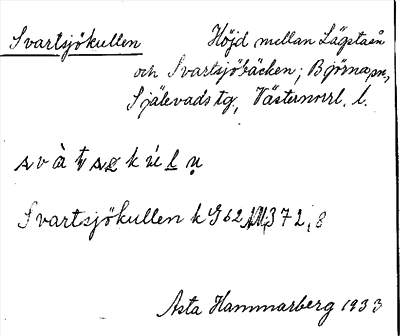 Svartsjökullen Höjd mellan Lägstaån
och Svartsjöbäcken; Björna sn,
Själevads tg, Västernorrl. l.
Svartsjökullen k G 62 372, 8
Asta Hammarberg 1933